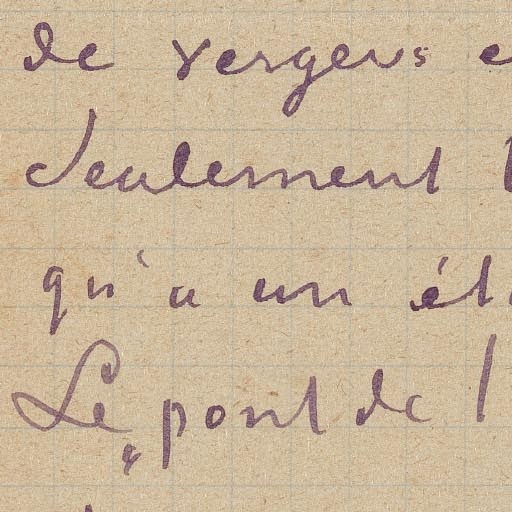 de vergers e
Seulement
qu'a un ét
Le pont de l